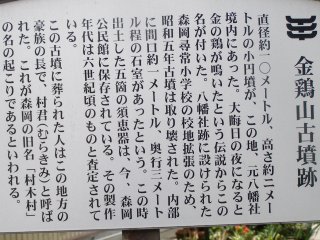 金鶏山古墳跡
直径約一〇メートル、高さ約二メー
トルの小円墳が、この地、元八幡社
境内にあった。大晦日の夜になると
金の鶏が鳴いたという伝説からこの
名が付いた。八幡社跡に設けられた
森岡尋常小学校の校地拡張のため、
昭和五年古墳は取り壊された。内部
に間口約一メートル、奥行三メート
ル程の石室があったという。この時
出土した五箇の須恵器は、今、森岡
公民館に保存されている。その製作
年代は六世紀頃のものと査定されて
いる。
この古墳に葬られた人はこの地方の
豪族の長で、村君(むらきみ)と呼ば
れた。これが森岡の旧名「村木村」
の名の起こりであるといわれる。